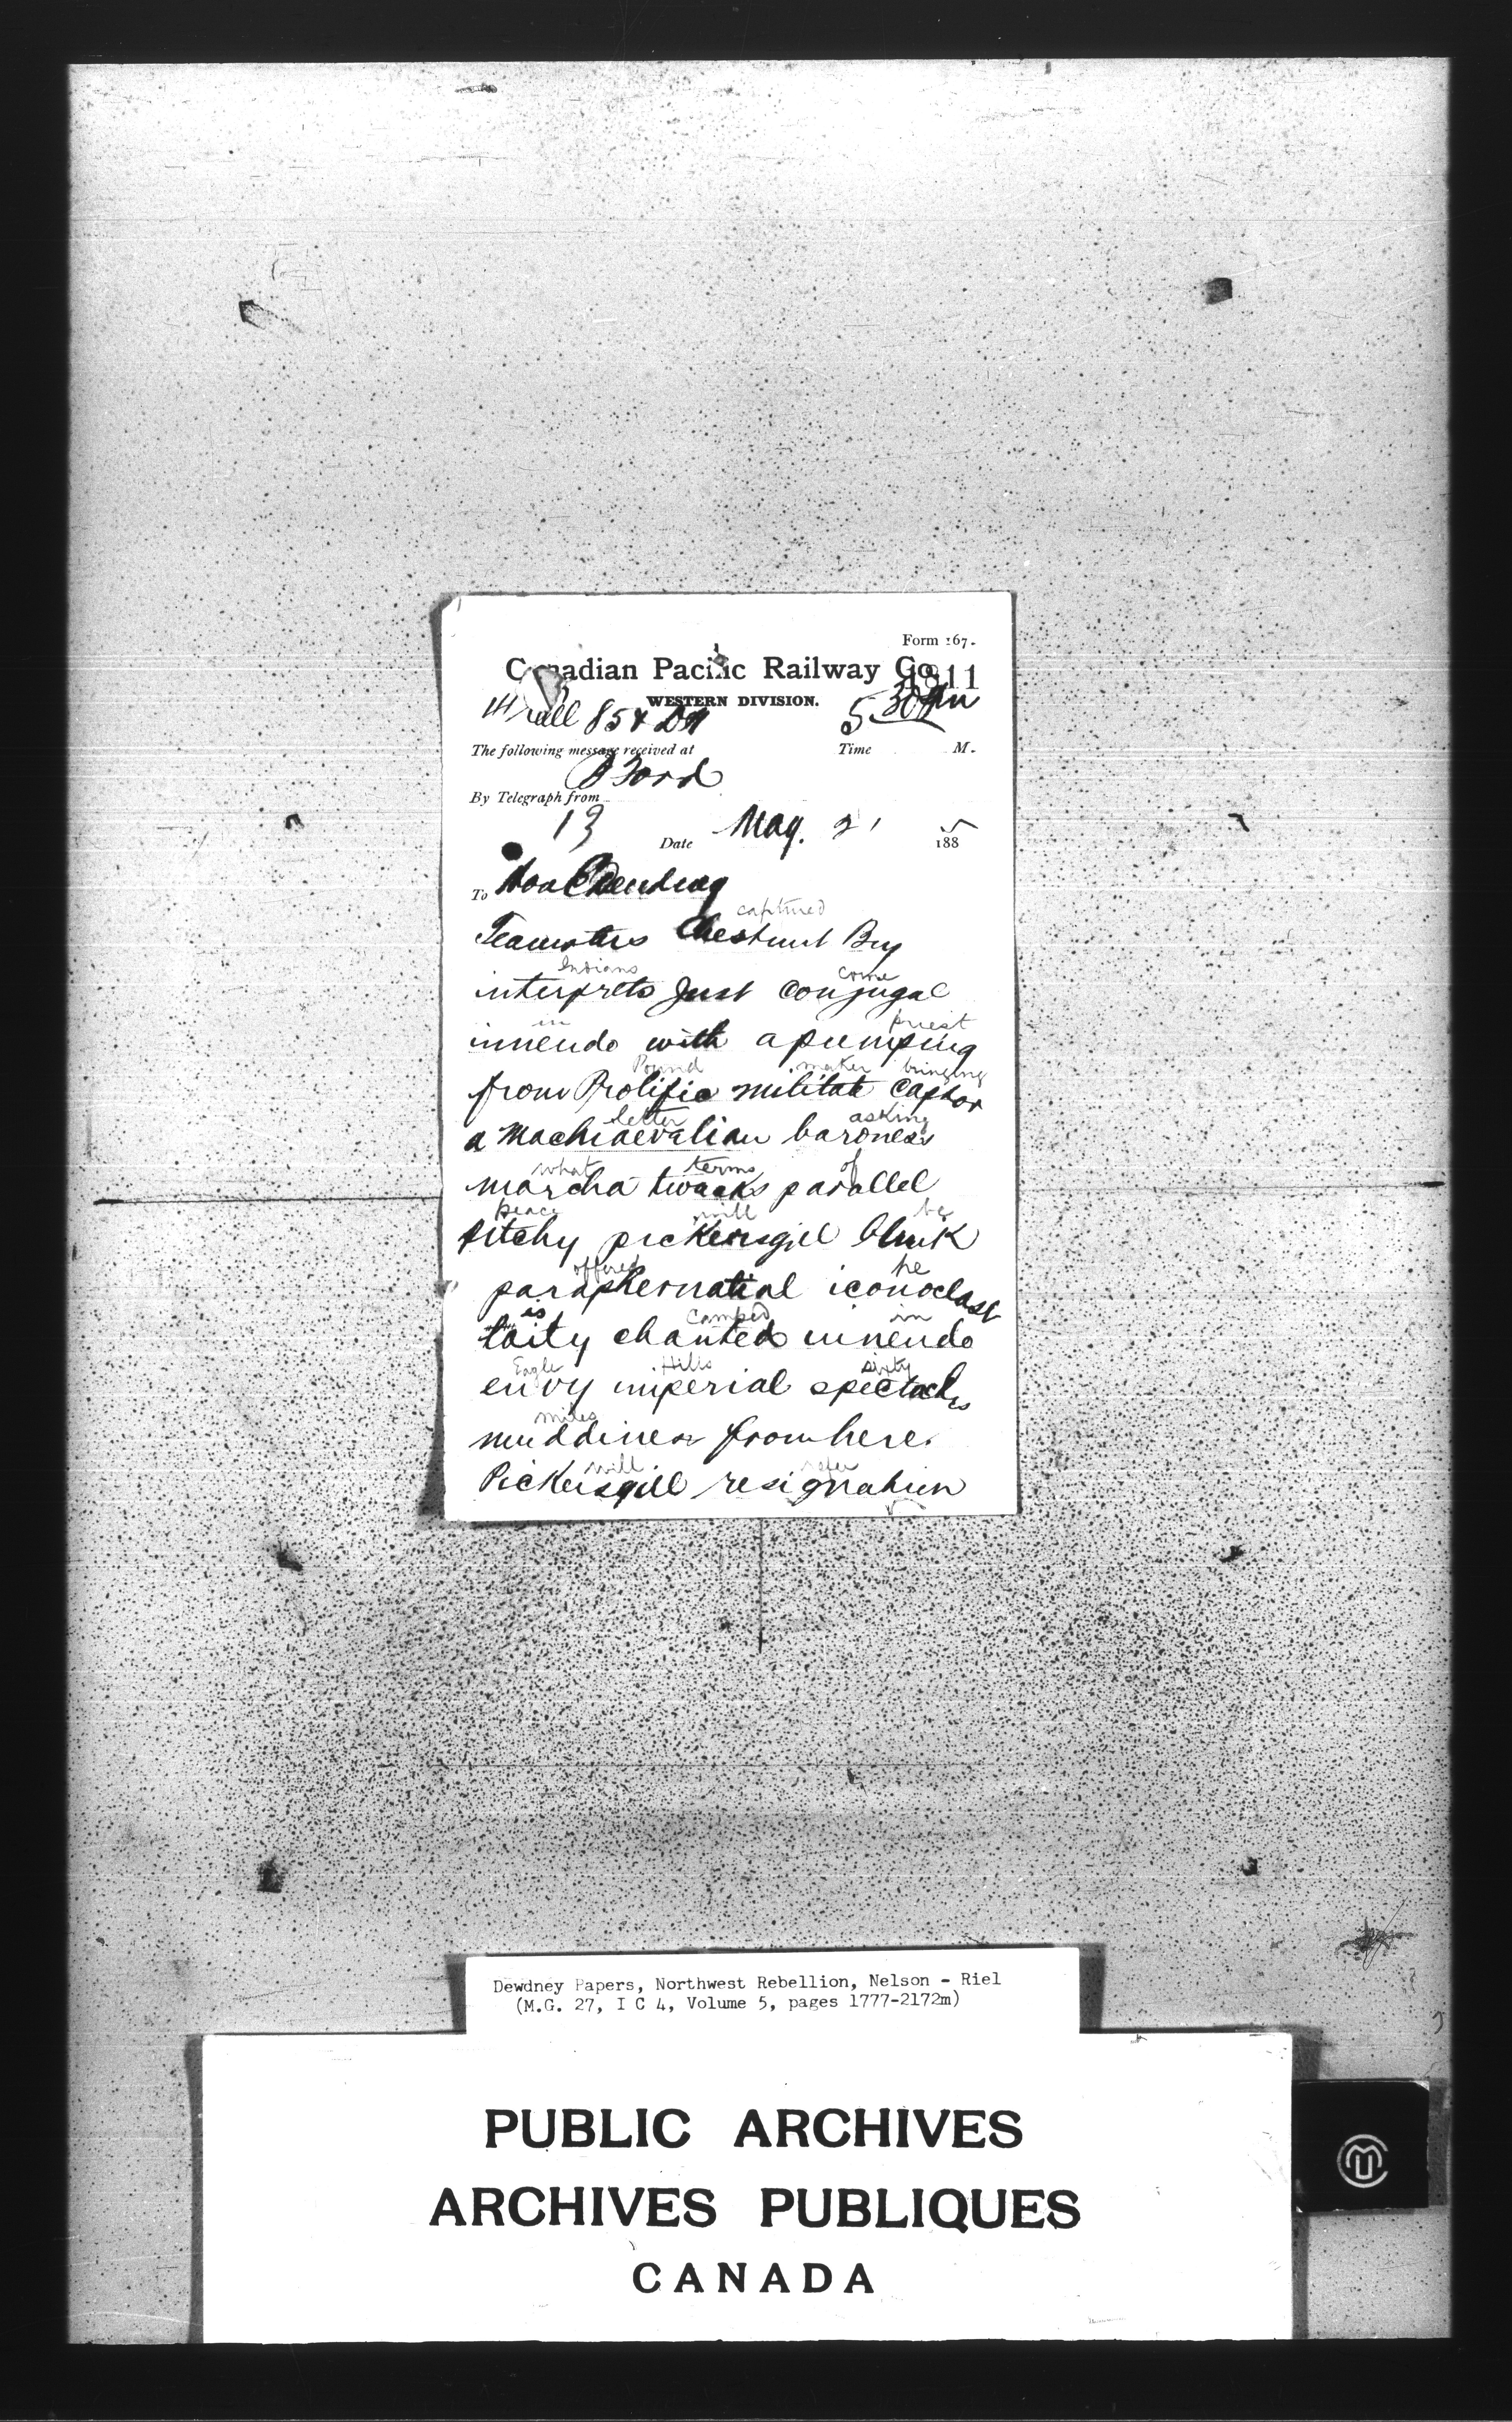 Form 167.
Canadian Pacific Railway Co.
1811
WESTERN DIVISION.
5 30 Pm
The following message received at
Time M.
B Ford
By Telegraph from
13
Date May. 21 188 5
To Hon E Dewdney
captured
Teamsters Chestnut By
Indians come
interprets Just Conjugal
in priest
innendo with a pumping
Pound maker bringing
from Prolific militate Captor
letter asking
a Machiaevalian baroness
what terms of
marcha twacks parallel
peace will be
pitchy pickersgill blink
offered he
paraphernatial iconoclast
is Camped in
laity chanted innendo
Eagle Hills sixty
envy imperial spectacles
miles
muddiness from here.
will refer
Pickersgill resignation
Dewdney Papers, Northwest Rebellion, Nelson - Riel
(M.G. 27, I C 4, Volume 5, pages 1777-2172m)
PUBLIC ARCHIVES
ARCHIVES PUBLIQUES
CANADA